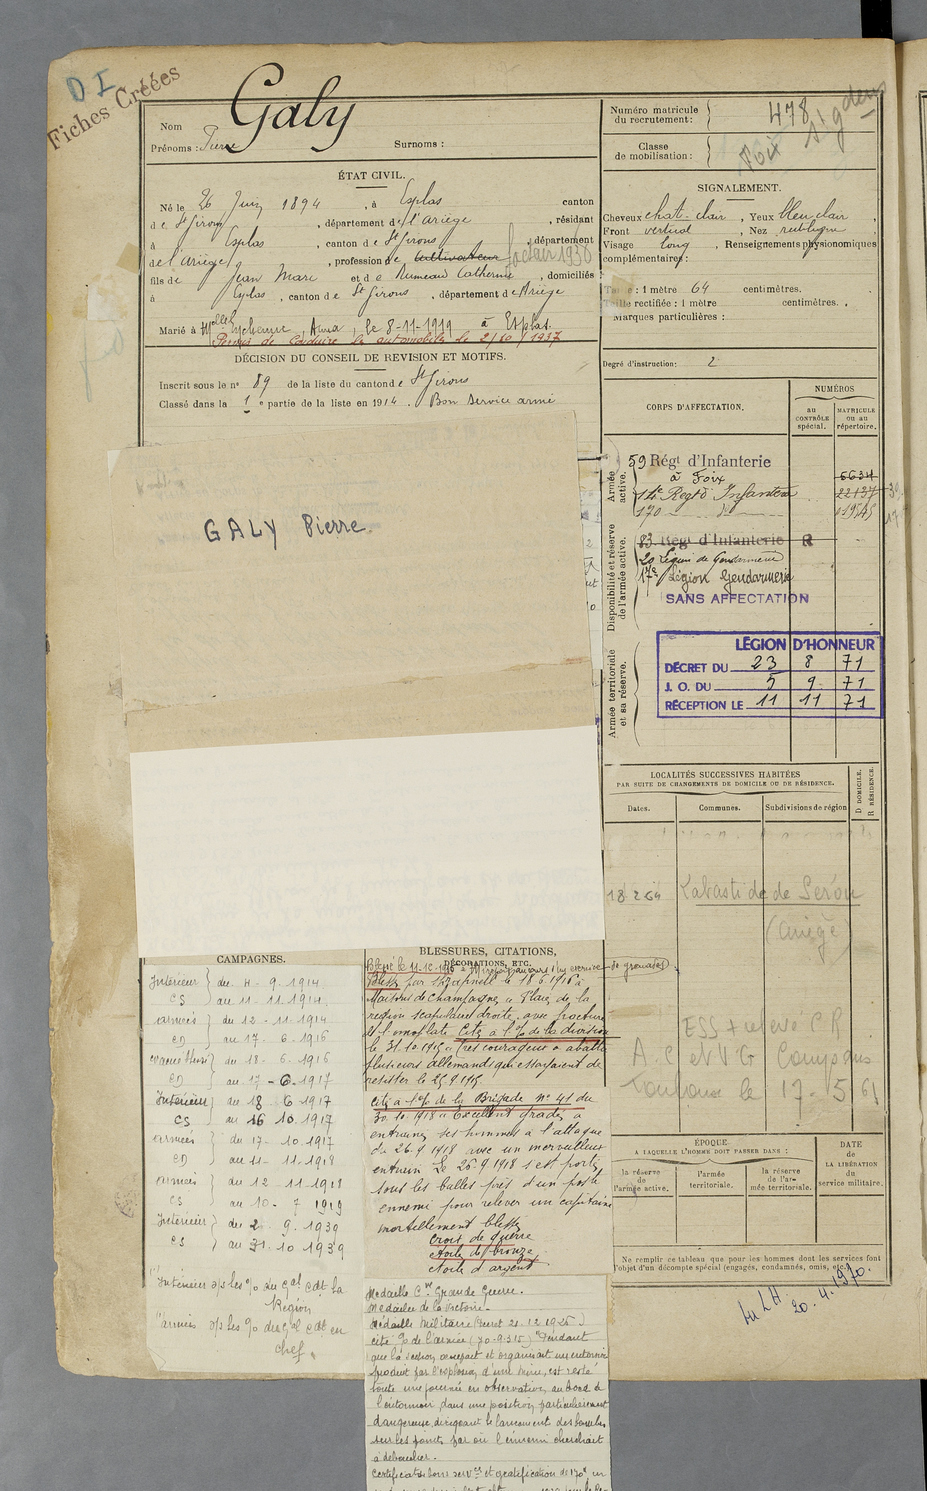 D I
Fiches Créées
Nom Galy
Prénoms : Pierre Surnoms :
ÉTAT CIVIL.
Né le 26 Juin 1894, à Esplas canton
de St Girons, département de l'Ariège, résidant
à Esplas, canton de St Girons, département
de l'Ariège, profession de cultivateur facteur 1930
fils de Jean Marc et de Rumeau Catherine, domiciliés
à Esplas, canton de St Girons, département de Ariège
Marié à Anna, le 8-11-1919 à Esplas.
Permis de conduire les automobiles le 2/10/1937
DÉCISION DU CONSEIL DE REVISION ET MOTIFS.
Inscrit sous le n° 89 de la liste du canton de St Girons
Classé dans la 1e partie de la liste en 1914. Bon service armé
GALY Pierre
Numéro matricule du recrutement : 478
Classe de mobilisation :
Foix
SIGNALEMENT.
Cheveux chat. clair, Yeux bleu clair,
Front vertical, Nez rectiligne,
Visage long, Renseignements physionomiques
complémentaires :
Taille : 1 mètre 64 centimètres.
Taille rectifiée : 1 mètre centimètres.
Marques particulières :
Degré d'instruction : 2
CORPS D'AFFECTATION.
NUMÉROS
au CONTRÔLE spécial.
MATRICULE ou au répertoire.
Armée active.
59 Régt d'Infanterie
à Foix 5634
14e Regt d'Infanterie 22137
170 — do — 01545
Disponibilité et réserve de l'armée active.
83 Régt d'Infanterie R
20 Légion de Gendarmerie
17e Légion Gendarmerie
SANS AFFECTATION
Armée territoriale et sa réserve.
LÉGION D'HONNEUR
DÉCRET DU 23 8 71
J. O. DU 5 9 71
RÉCEPTION LE 11 11 71
LOCALITÉS SUCCESSIVES HABITÉES
PAR SUITE DE CHANGEMENTS DE DOMICILE OU DE RÉSIDENCE.
Dates. Communes. Subdivisions de région
D DOMICILE.
R RÉSIDENCE.
18 2 64 Labastide de Sérou
(Ariège)
ESS + relevé CR
A.C et VG Campagnes
Toulouse le 17-5-61
ÉPOQUE
A LAQUELLE L'HOMME DOIT PASSER DANS :
la réserve de l'armée active.
l'armée territoriale.
la réserve de l'armée territoriale.
DATE de LA LIBÉRATION du service militaire.
Ne remplir ce tableau que pour les hommes dont les services font
l'objet d'un décompte spécial (engagés, condamnés, omis, etc.)
LH 20.4.1970.
CAMPAGNES.
Intérieur } du 4-9-1914
CS au 11-11-1914
armées } du 12-11-1914
CD au 17-6-1916
du 18-6-1916
CD au 17-6-1917
Intérieur } du 18 6 1917
CS au 16 10 1917
armées } du 17-10-1917
CD au 11-11-1918
armées } du 12-11-1918
CS au 10-7 1919
Intérieur } du 2 9-1939
CS au 31-10 1939
Intérieur o/s les % du Gal cdt la
Region
armées o/s les % du Gal cdt en
chef "
BLESSURES, CITATIONS,
DÉCORATIONS, ETC.
Blessé par shrapnell le 18-6-1916 à
Maisons de Champagne « Plaie de la
region scapulaire droite avec fracture
de l'omoplate. Cité à l'% de la division
le 31.10.1915 « Très courageux a abattu
plusieurs allemands qui essayaient de
resister le 25.9.1915
Cité à l'% de la Brigade N° 41 du
30.10.1918 « Excellent gradé, a
entrainé ses hommes à l'attaque
du 26.9 1918 avec un merveilleux
entrain. Le 26.9 1918 s'est porté
sous les balles près d'un poste
ennemi pour relever un capitaine
mortellement blessé
Croix de guerre
étoile de bronze
étoile d'argent
Medaille Cve Grande Guerre.
Medaille de la Victoire.
Médaille Militaire (Decret 20.12.1925)
Cité % de l'armée "Pendant
que la section occupait et organisait un entonnoir
produit par l'explosion d'une mine, est resté
toute une journée en observation, au bord de
l'entonnoir, dans une position particulièrement
dangereuse, dirigeant le lancement des bombes
sur les points par où l'ennemi cherchait
à déboucher.